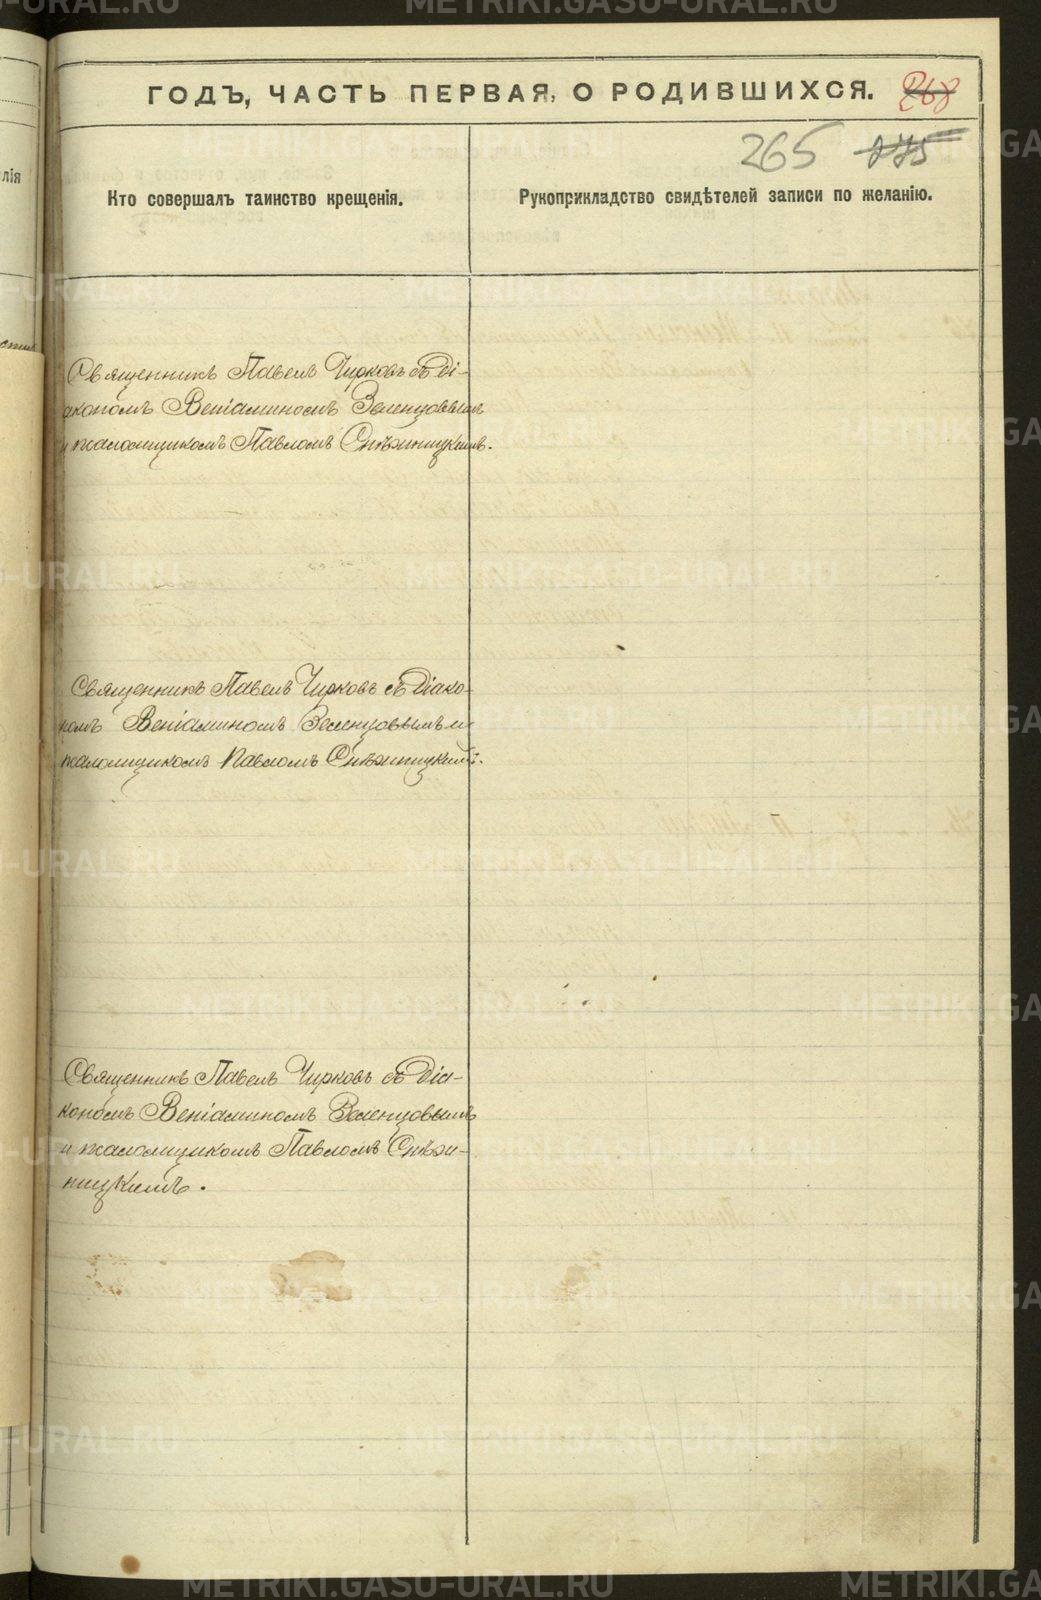 ГОДЪ, ЧАСТЬ ПЕРВАЯ, О РОДИВШИХСЯ. 268
265 275
Кто совершалъ таинство крещенія.
Рукоприкладство свидѣтелей записи по желанію.
лія
Священникъ Павелъ Чирковъ съ Ді-
акономъ Веніаминомъ Зеленцовымъ
и псаломщикомъ Павломъ Снѣжницкимъ.
Священникъ Павелъ Чирковъ съ Діако-
номъ Веніаминомъ Зеленцовымъ и
псаломщикомъ Павломъ Снѣжницкимъ.
Священникъ Павелъ Чирковъ съ Діа-
кономъ Веніаминомъ Зеленцовымъ
и псаломщикомъ Павломъ Снѣж-
ницкимъ.
METRIKI.GASO-URAL.RU